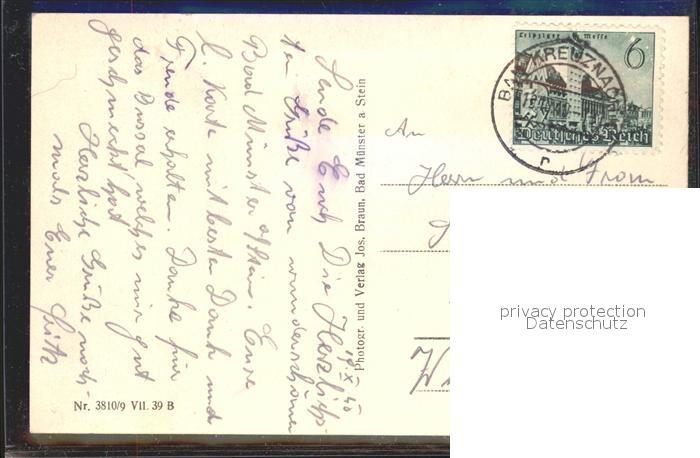 Sende Euch Die Herzlichs-
ten Grüße vom wunderschönen
Bad Münster a/Stein. Eure
l. Karte mit besten Dank und
Freude erhalten. Danke für
das welches mir gut
geschmeckt hat.
Herzliche Grüße noch-
mals Euer Fritz
Nr. 3810/9 VII. 39 B
Photogr. und Verlag Jos. Braun, Bad Münster a Stein
Leipziger Messe
6
Deutsches Reich
BAD KREUZNACH
r
An
Herrn und
privacy protection
Datenschutz